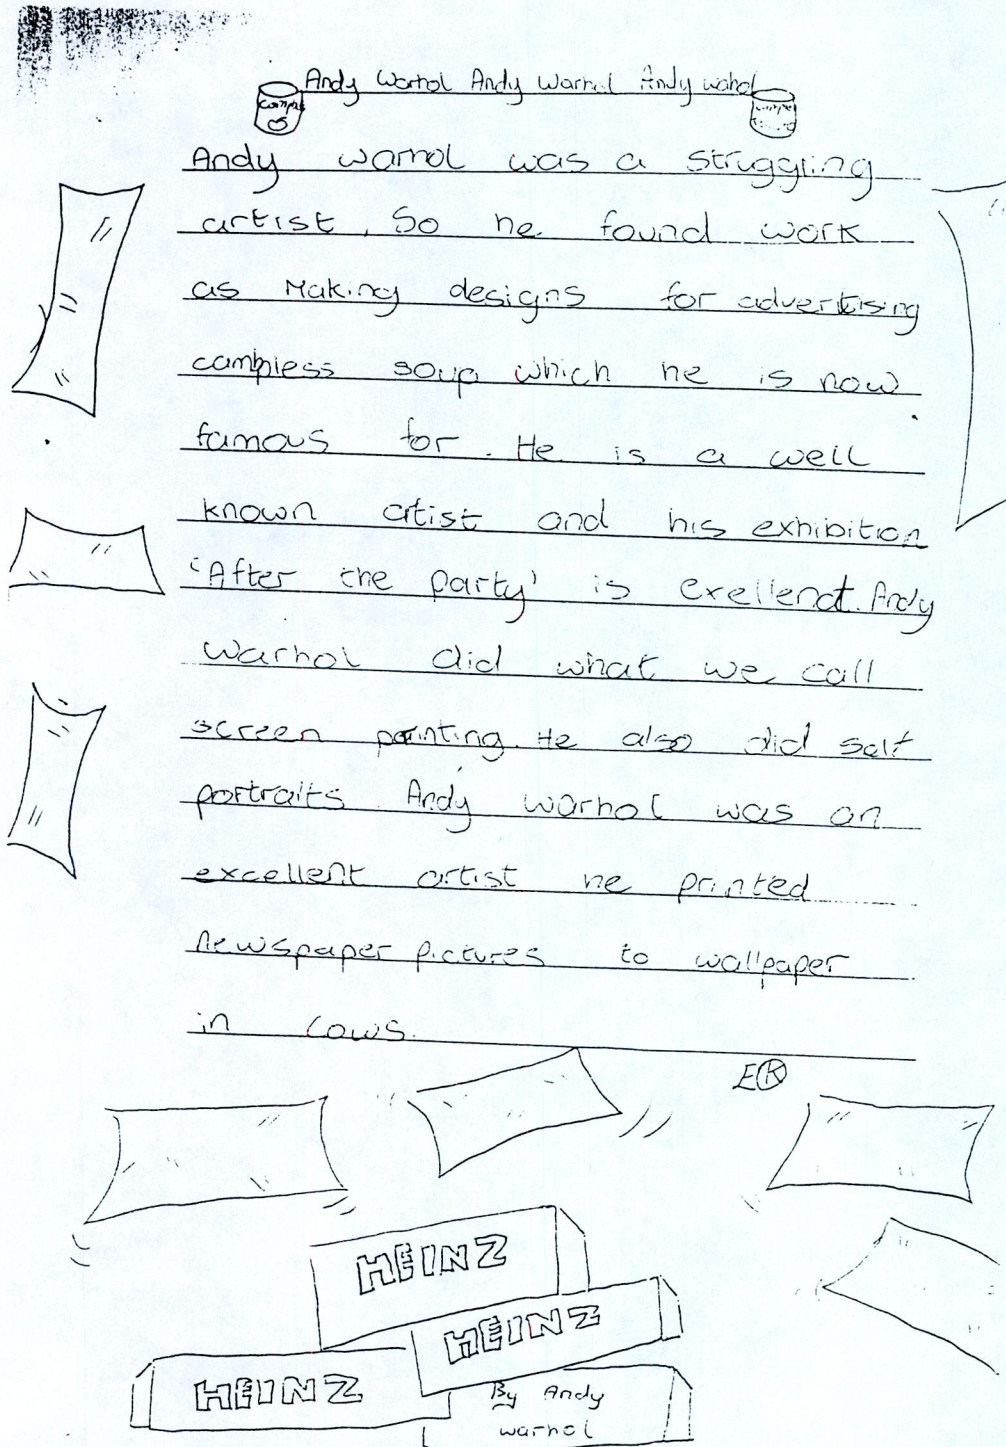 Andy Warhol Andy Warhol Andy wahol
Andy warhol was a struggling
artist. So he found work
as Making designs for advertising
campless soup which he is now
famous for. He is a well
known artist and his exhibition
'After the party' is exellenct. Andy
Warhol did what we call
screen printing. He also did self
portraits. Andy warhol was an
excellent artist he printed
newspaper pictures to wallpaper
in cows.
ER
HEINZ
HEINZ
HEINZ
By Andy
warhol